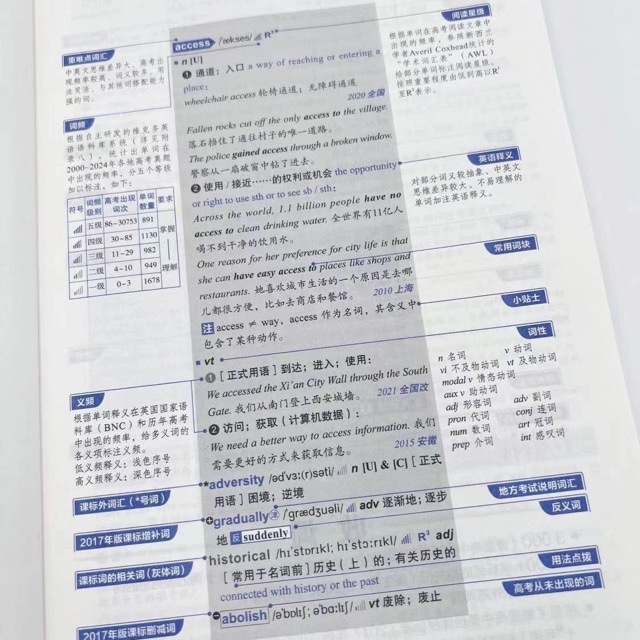 重难点词汇
中英文思维差异大、高考出
现频率较高、词义较多、用
法灵活、与其他词搭配能力
强的词。
词频
根据自主研发的维克多英
语语料库系统（详见附
录八），统计出单词在
2000-2024年各地高考真题
中出现的频率，分五个等级
加以标注，如下：
符号 词频级别 高考出现词次 单词数量 要求
五级 86~30753 891 掌握
四级 30~85 1130
三级 11~29 982
二级 4~10 949
一级 0~3 1678 理解
义频
根据单词释义在英国国家语
料库（BNC）和历年高考
中出现的频率，给多义词的
各义项标注义频。
低义频释义：浅色序号
高义频释义：深色序号
课标外词汇（*号词）
2017年版课标增补词
课标词的相关词（灰体词）
2017年版课标删减词
access /ˈækses/ R³
n [U]
❶ 通道；入口 a way of reaching or entering a
place:
wheelchair access 轮椅通道；无障碍通道
2020 全国
Fallen rocks cut off the only access to the village.
落石挡住了通往村子的唯一道路。
The police gained access through a broken window.
警察从一扇破窗中钻了进去。
❷ 使用 / 接近……的权利或机会 the opportunity
or right to use sth or to see sb / sth:
Across the world, 1.1 billion people have no
access to clean drinking water. 全世界有11亿人
喝不到干净的饮用水。
One reason for her preference for city life is that
she can have easy access to places like shops and
restaurants. 她喜欢城市生活的一个原因是去哪
儿都很方便，比如去商店和餐馆。 2010 上海
注 access ≠ way, access 作为名词，其含义中
包含了某种动作。
vt
❶ [正式用语] 到达；进入；使用：
We accessed the Xi'an City Wall through the South
Gate. 我们从南门登上西安城墙。 2021 全国改
❷ 访问；获取（计算机数据）：
We need a better way to access information. 我们
需要更好的方式来获取信息。 2015 安徽
*adversity /ədˈvɜː(r)səti/ n [U] & [C] [正式
用语] 困境；逆境
gradually 注 /ˈɡrædʒuəli/ adv 逐渐地；逐步
地 反 suddenly
historical /hɪˈstɒrɪkl; hɪˈstɔːrɪkl/ R³ adj
[常用于名词前] 历史（上）的；有关历史的
connected with history or the past
abolish /əˈbɒlɪʃ; əˈbɑːlɪʃ/ vt 废除；废止
阅读星级
根据单词在高考阅读文章中
出现的频率，参照新西兰
学者Averil Coxhead统计的
“学术词汇表”（AWL）
给部分单词标注阅读星级。
按照重要程度由低到高以R¹
至R⁵表示。
英语释义
对部分词义较抽象、中英文
思维差异较大、不易理解的
单词加注英语释义。
常用词块
小贴士
词性
n 名词 v 动词
vi 不及物动词 vt 及物动词
modal v 情态动词
aux v 助动词
adj 形容词 adv 副词
pron 代词 conj 连词
num 数词 art 冠词
prep 介词 int 感叹词
地方考试说明词汇
反义词
用法点拨
高考从未出现的词